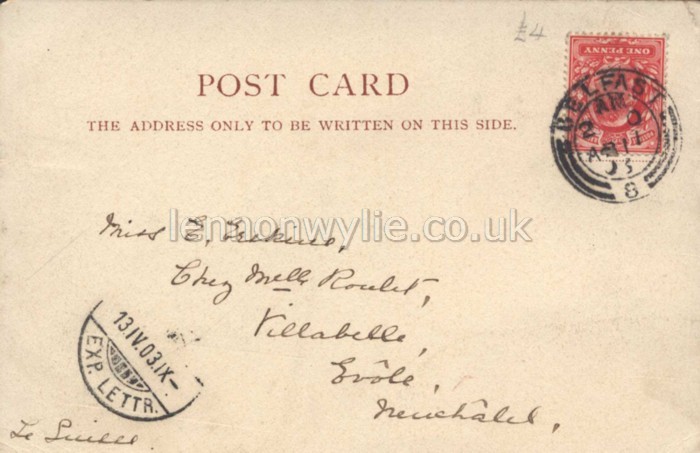 £4
ONE PENNY
POST CARD
THE ADDRESS ONLY TO BE WRITTEN ON THIS SIDE.
BELFAST
AM
AP 11
03
8
lennonwylie.co.uk
Miss E.
Chez Melle Roulet,
Villabelle,
Evôle,
Neuchâtel,
13.IV.03.IX-
EXP. LETTR.
La Suisse